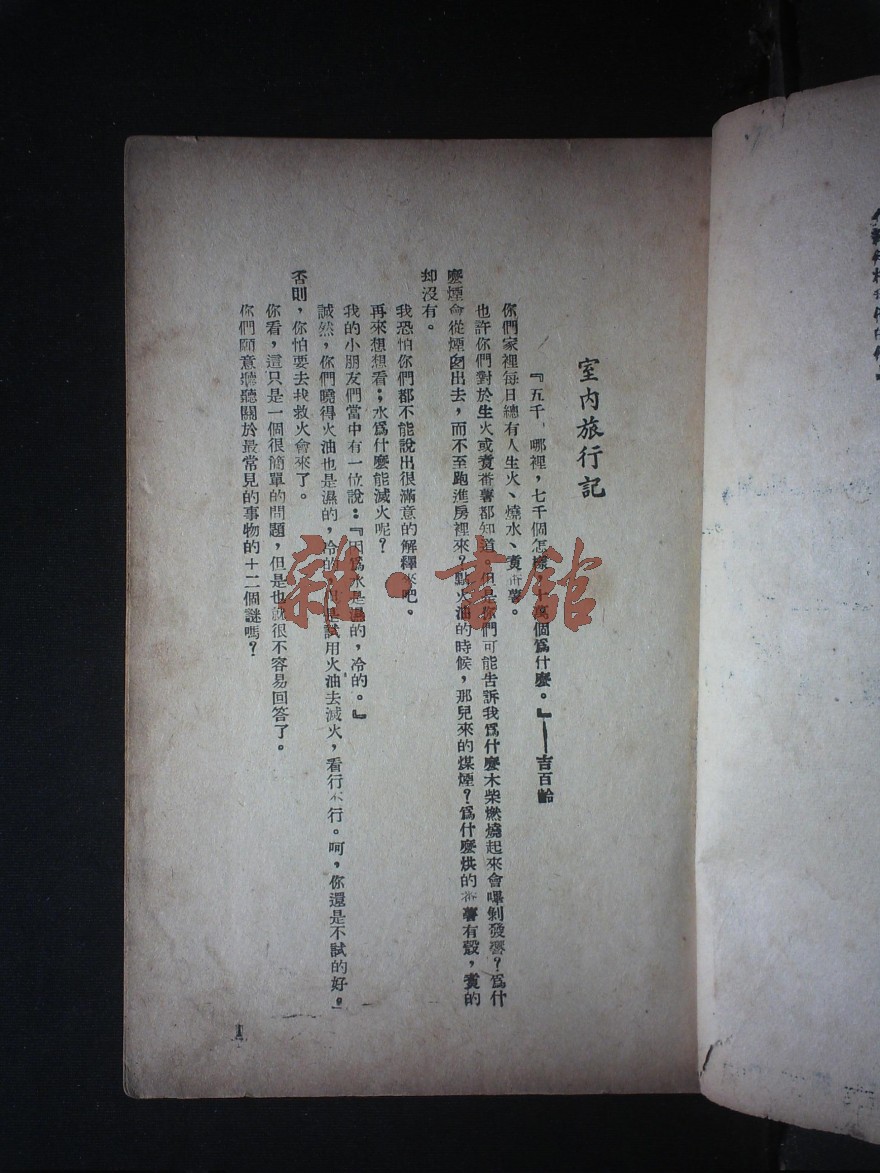 室內旅行記
『五千，哪裡，七千個怎樣，十萬個爲什麼。』——吉百齡
你們家裡每日總有人生火、燒水、煑番薯。
也許你們對於生火或煑番薯都知道，但是你們可能吿訴我爲什麼木柴燃燒起來會嗶剝發響？爲什
麼煙會從煙囱出去，而不至跑進房裡來？點火油的時候，那兒來的煤煙？爲什麼烘的番薯有殼，煑的
却沒有。
我恐怕你們都不能說出很滿意的解釋來吧。
再來想想看；水爲什麼能滅火呢？
我的小朋友們當中有一位說：『因爲水是濕的，冷的。』
誠然，你們曉得火油也是濕的，冷的，但是試用火油去滅火，看行不行。呵，你還是不試的好。
否則，你怕要去找救火會來了。
你看，這只是一個很簡單的問題，但是也就很不容易回答了。
你們願意聽聽關於最常見的事物的十二個謎嗎？
1
雜·書館